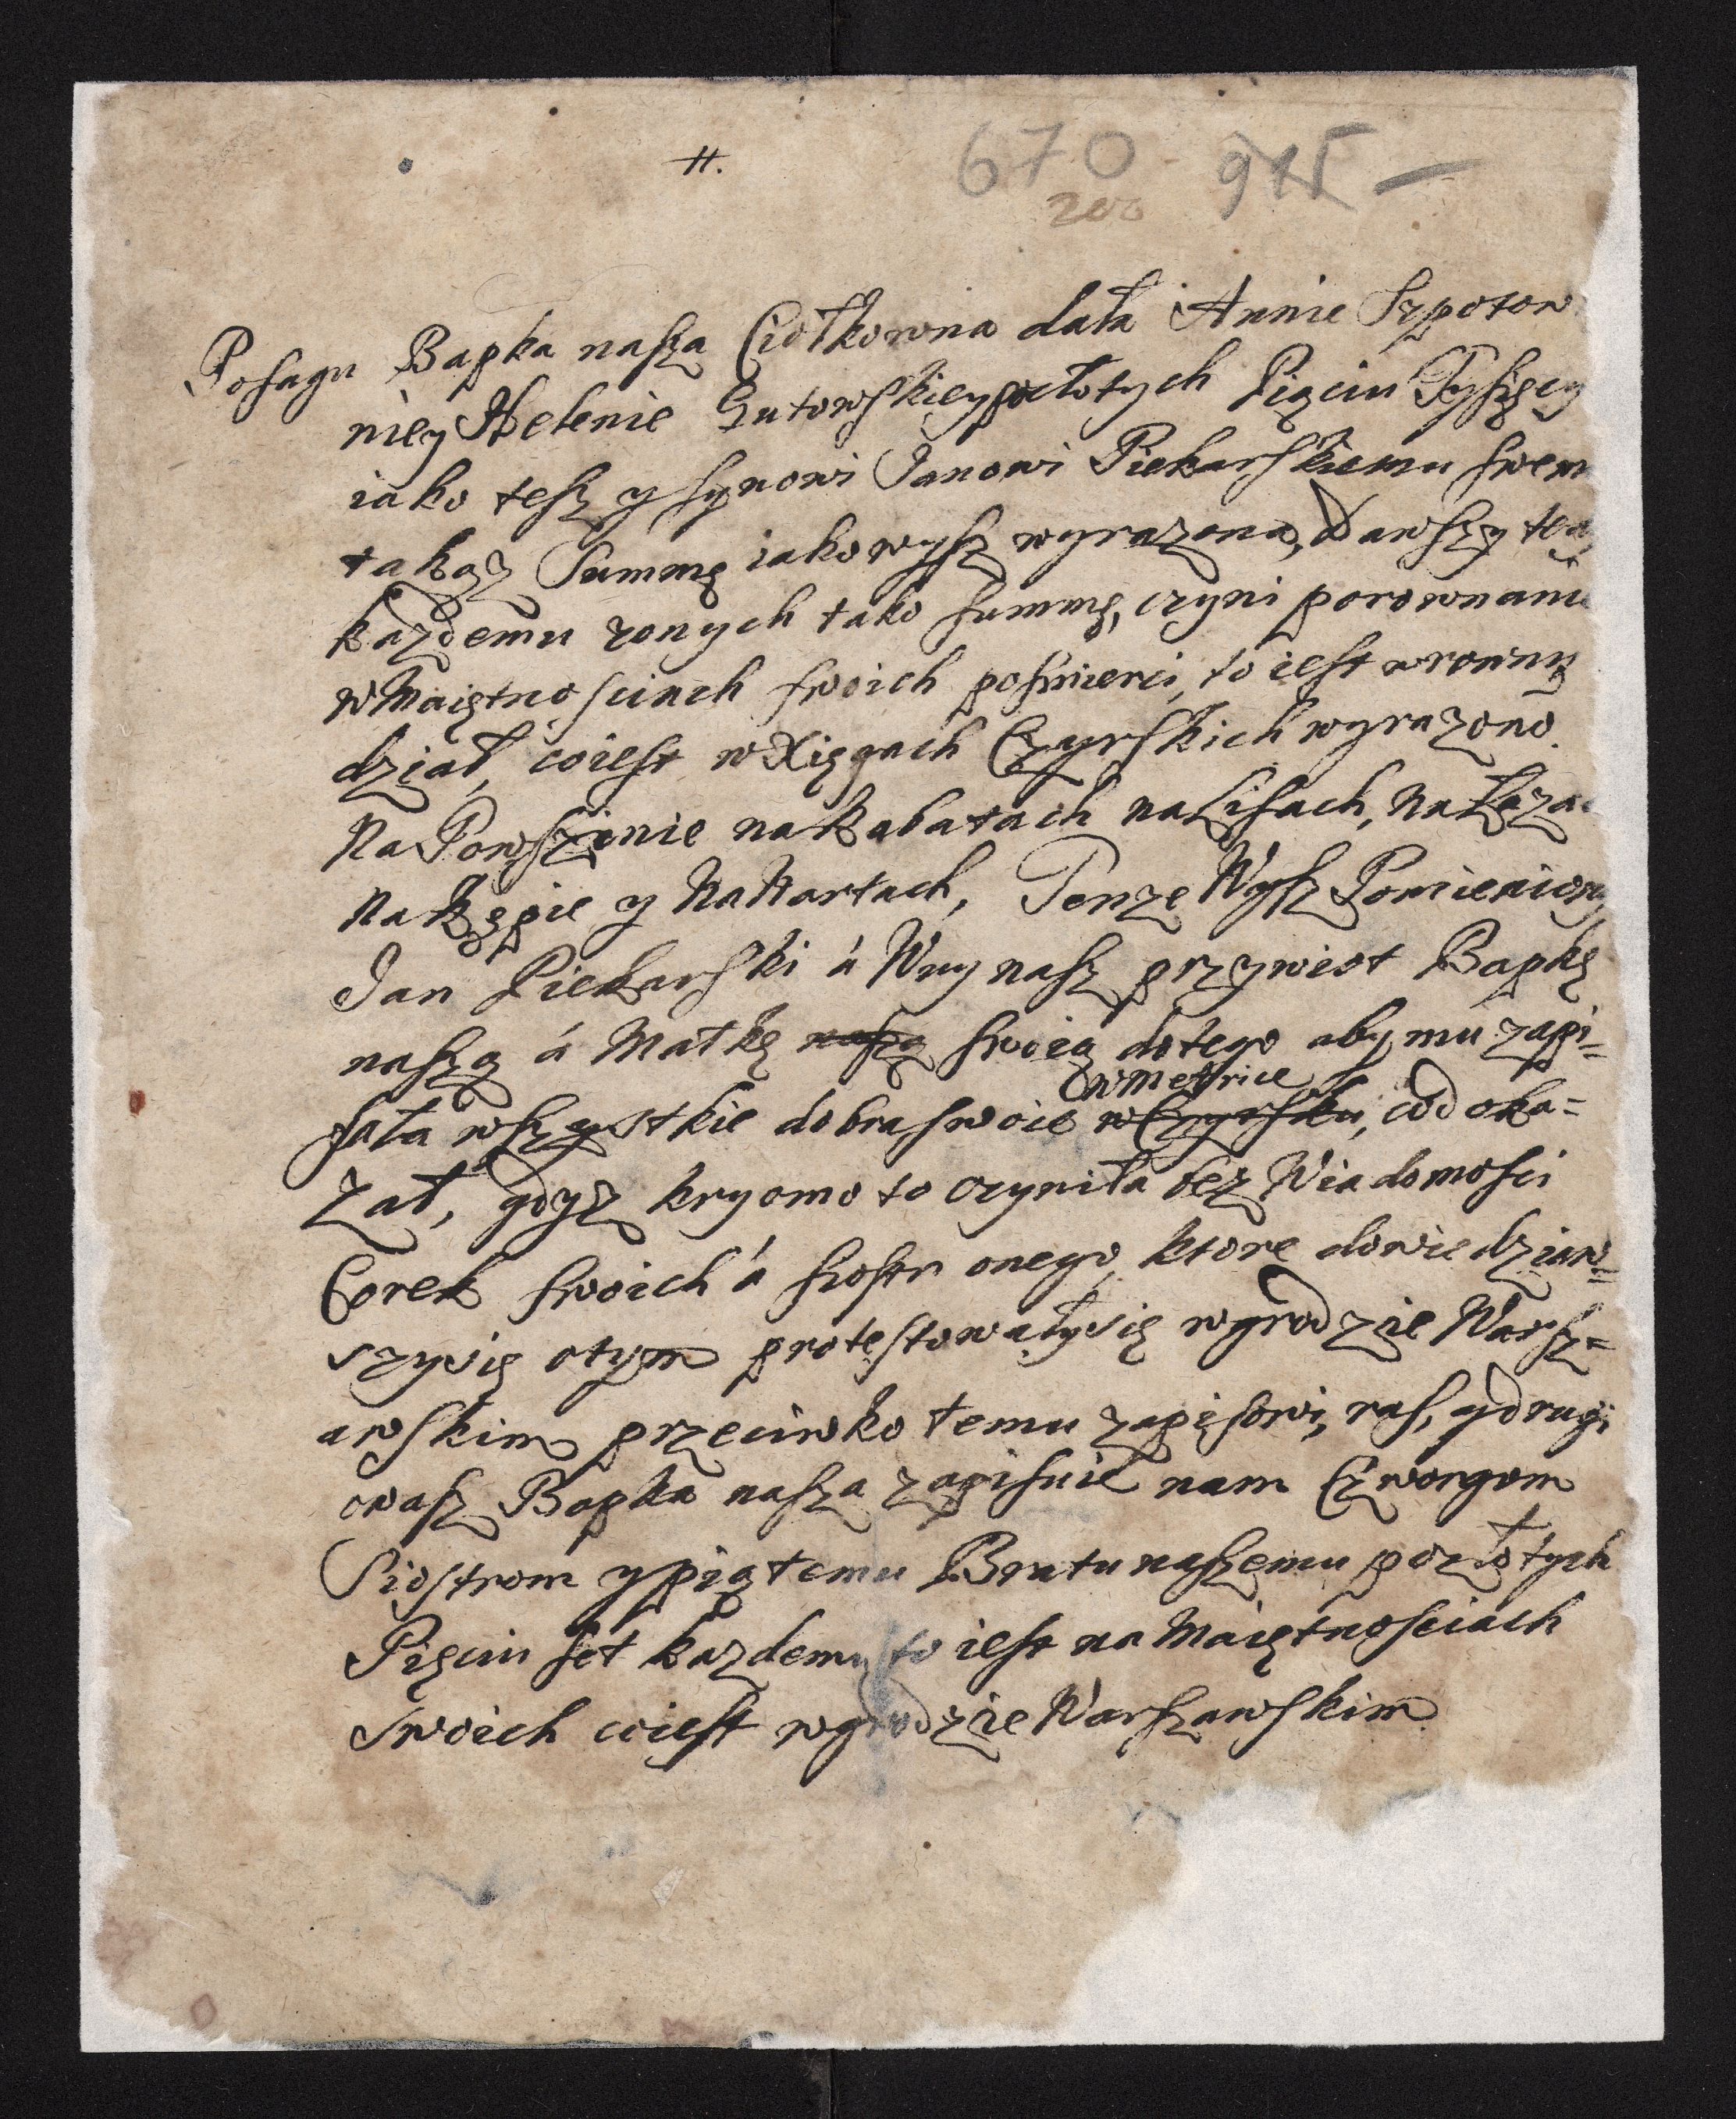 #.
670 915 —
200
Posagu Bapka nasza Ciołkowna dała Annie Szpotow
niey Helenie Gutowskiey po złotych Pięciu Tysięcy
iako tesz y synowi Janowi Piekarskiemu swem
takąz Summę iako wysz wyrazona, Dawszy tey
kazdemu zonych tako summę, czyni porownanie
w Maiętnosciach swoich posmierci, to iest wrowny
dział, coiest w Xięgach Czyrskich wyrazono.
Na Powszinie na Kabatach na Lisach, Na
Na Kępie y Na Nartach, Tenze Wysz Pomieniony
Jan Piekarski á Wuy nasz przywiot Bapkę
naszą á Matkę naszą swoią dotego aby mu zapi=
w Metrice
sała wszystkie dobra swoie w Czyrsku, codoka=
zał, gdysz kryomo to czyniła bez Wiadomosci
Corek swoich á siostr onego, ktore dowiedziaw=
szysię otym protestowałysię wgrodzie Warsz=
awskim przeciwko temu zapisowi, ras, y drugi
owasz Bapka nasza zapisuie nam Czworgom
Siostrom y piątemu Bratu naszemu po złotych
Pięciu set kazdemu to iest na Maiętnosciach
Swoich coiest wgrodzie Warszawskim